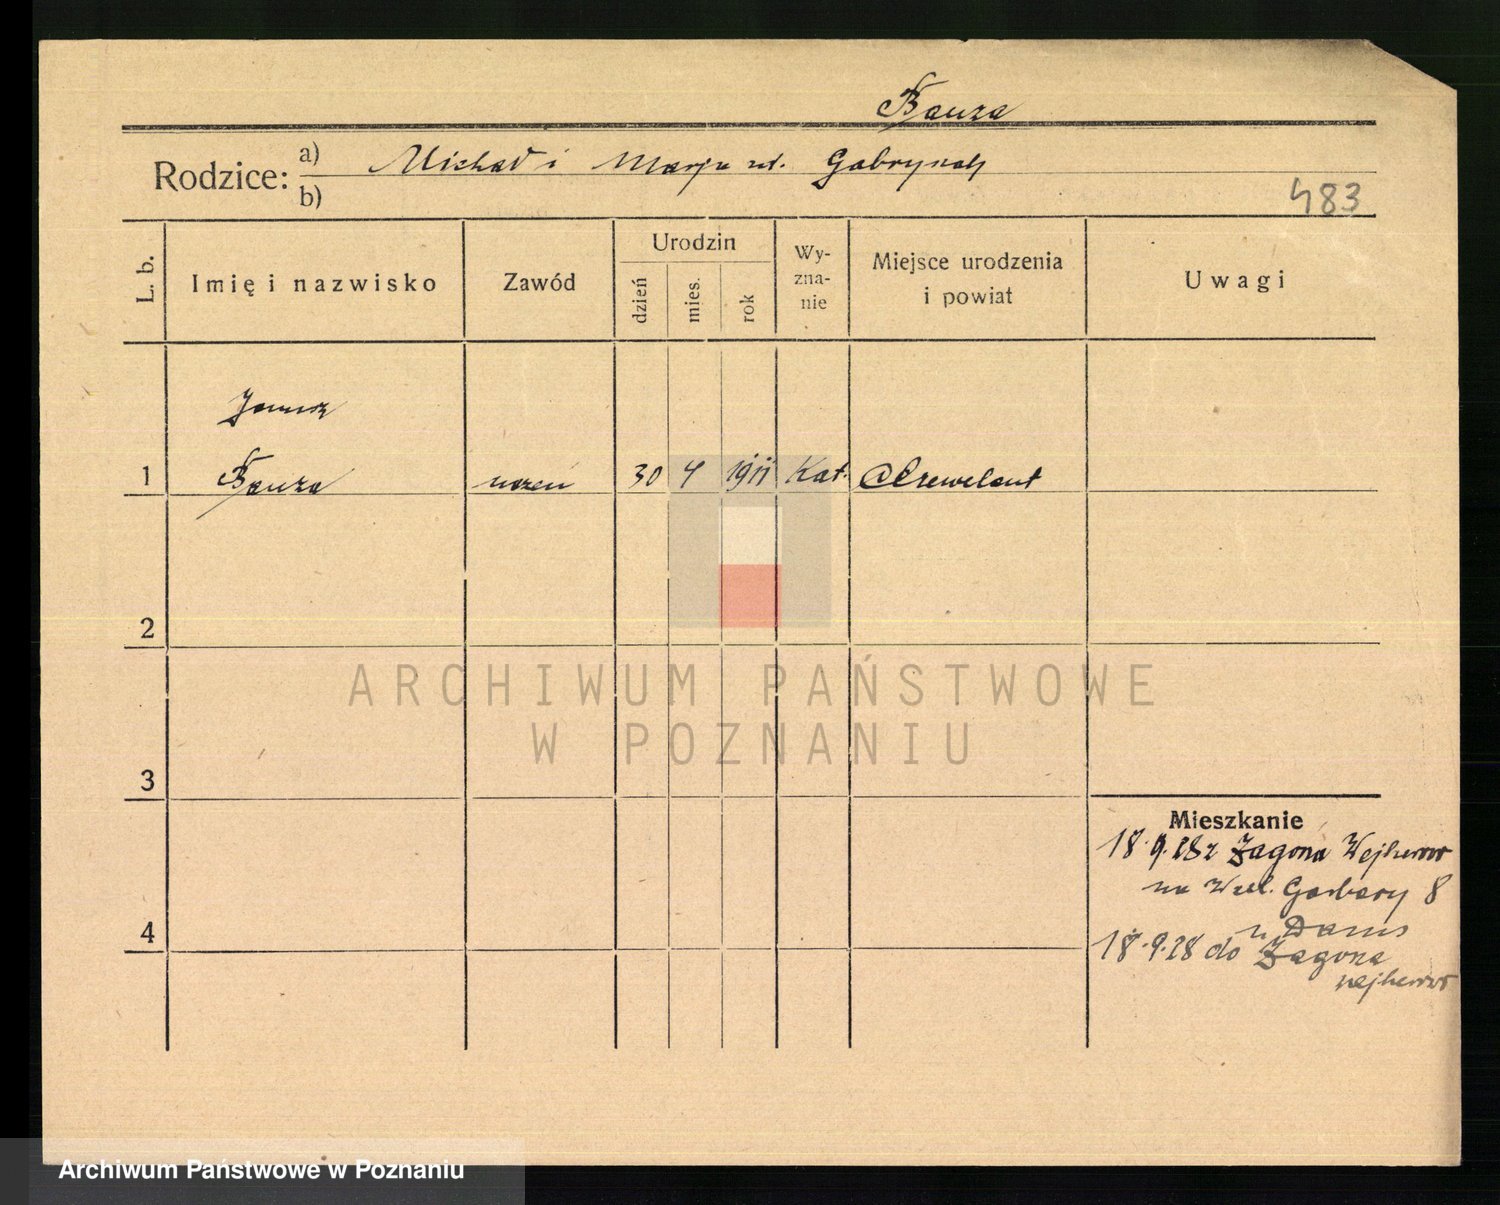 Bauza
Rodzice: a) Michał i Marja ur. Gabrynah
b)
483
L. b. Imię i nazwisko Zawód Urodzin dzień mies. rok Wy-zna-nie Miejsce urodzenia i powiat Uwagi
Janusz
1 Bauza uczeń 30 4 1911 Kat.
2
3
4
Mieszkanie
18.9.28 z Żagona Wejherowo
na Wiel. Garbary 8
u
18.9.28 do Żagona
wejherowo
ARCHIWUM PAŃSTWOWE
W POZNANIU
Archiwum Państwowe w Poznaniu